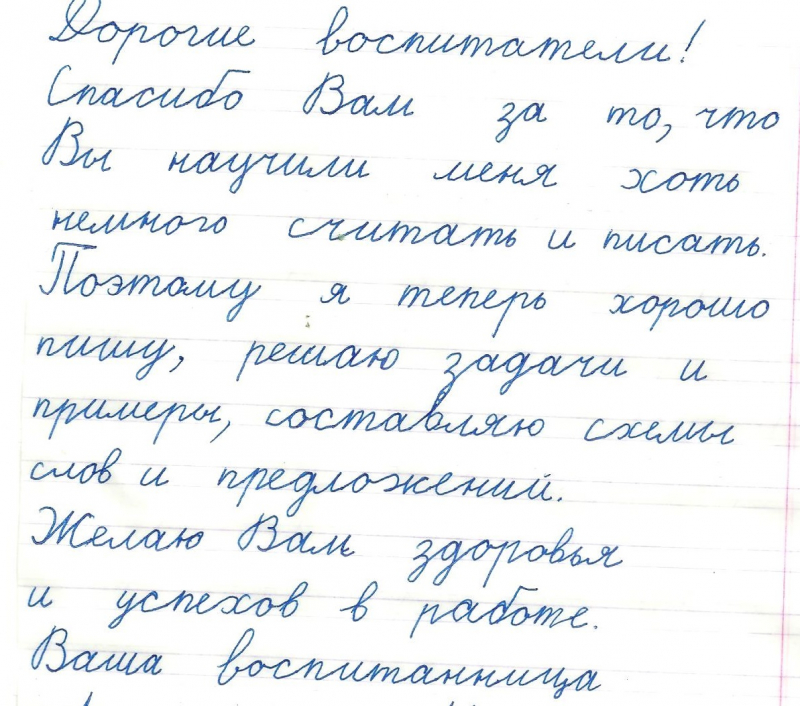 Дорогие воспитатели!
Спасибо Вам за то, что
Вы научили меня хоть
немного считать и писать.
Поэтому я теперь хорошо
пишу, решаю задачи и
примеры, составляю схемы
слов и предложений.
Желаю Вам здоровья
и успехов в работе.
Ваша воспитанница